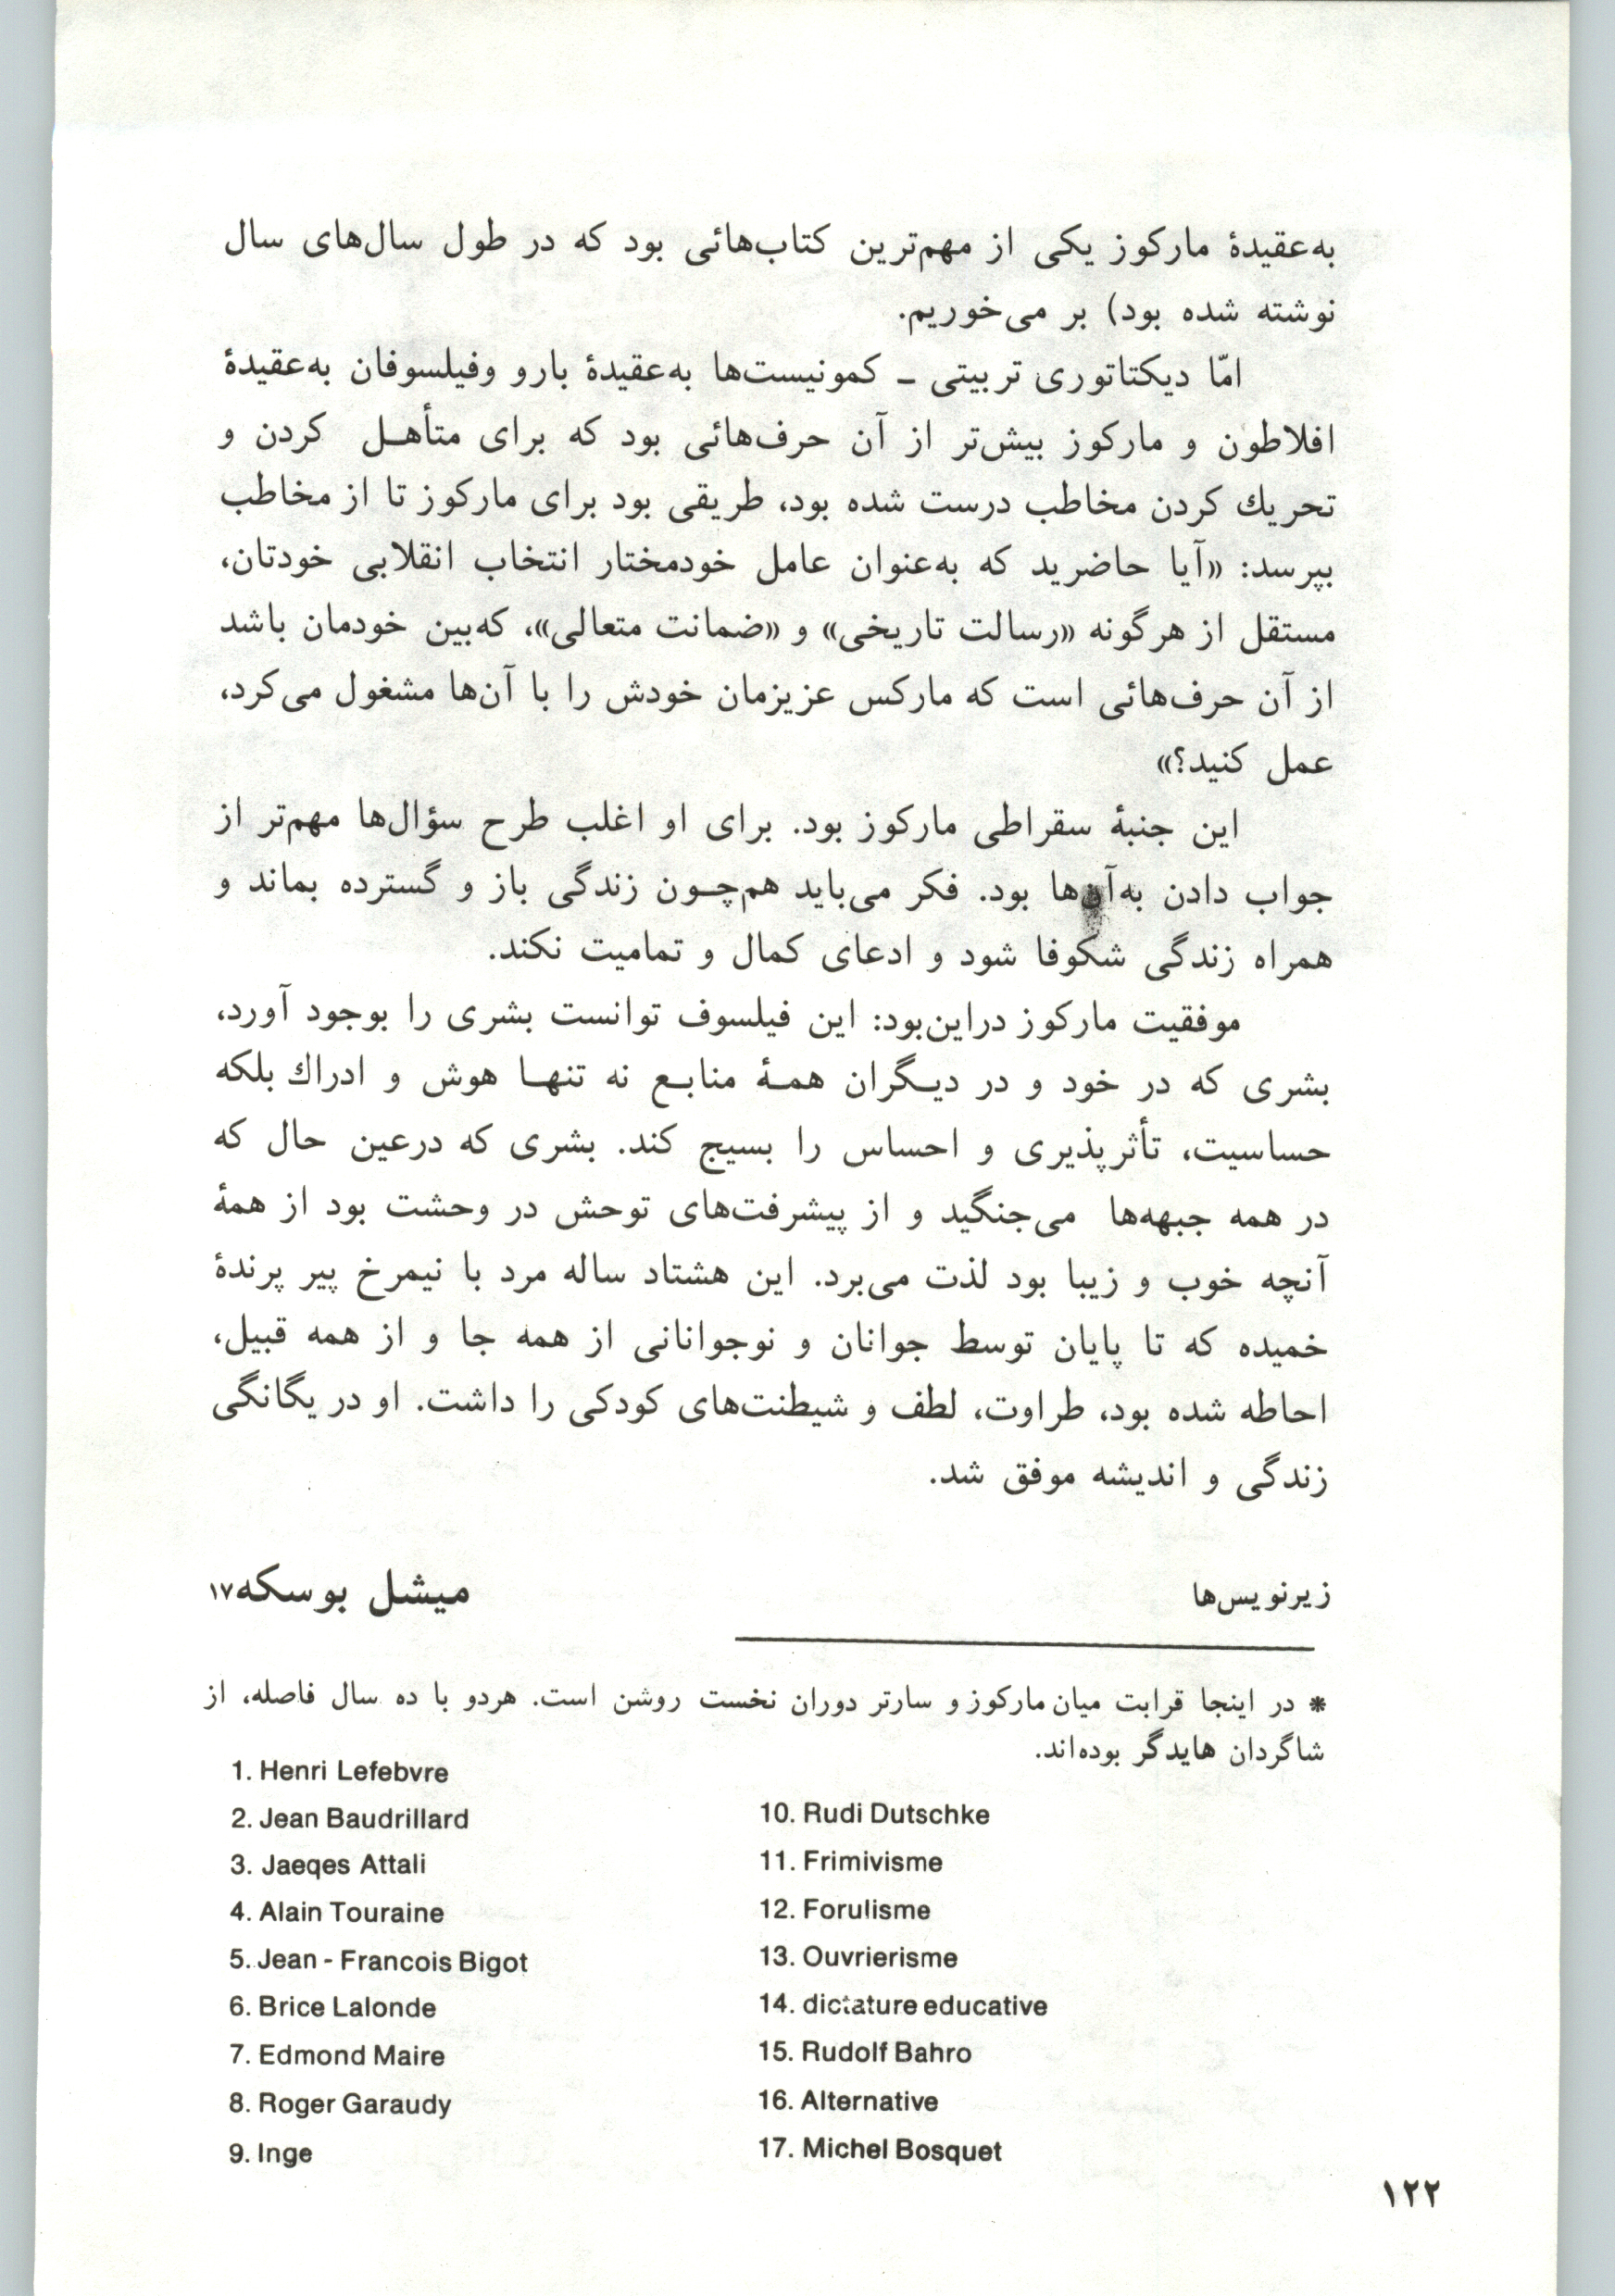 به‌عقیدهٔ مارکوز یکی از مهم‌ترین کتاب‌هائی بود که در طول سال‌های سال
نوشته شده بود) بر می‌خوریم.
امّا دیکتاتوری تربیتی ـ کمونیست‌ها به‌عقیدهٔ بارو وفیلسوفان به‌عقیدهٔ
افلاطون و مارکوز بیش‌تر از آن حرف‌هائی بود که برای متأهـل کردن و
تحریك کردن مخاطب درست شده بود، طریقی بود برای مارکوز تا از مخاطب
بپرسد: «آیا حاضرید که به‌عنوان عامل خودمختار انتخاب انقلابی خودتان،
مستقل از هرگونه «رسالت تاریخی» و «ضمانت متعالی»، که‌بین خودمان باشد
از آن حرف‌هائی است که مارکس عزیزمان خودش را با آن‌ها مشغول می‌کرد،
عمل کنید؟»
این جنبهٔ سقراطی مارکوز بود. برای او اغلب طرح سؤال‌ها مهم‌تر از
جواب دادن به‌آن‌ها بود. فکر می‌باید هم‌چـون زندگی باز و گسترده بماند و
همراه زندگی شکوفا شود و ادعای کمال و تمامیت نکند.
موفقیت مارکوز دراین‌بود: این فیلسوف توانست بشری را بوجود آورد،
بشری که در خود و در دیـگران همـهٔ منابـع نه تنهـا هوش و ادراك بلکه
حساسیت، تأثرپذیری و احساس را بسیج کند. بشری که درعین حال که
در همه جبهه‌ها می‌جنگید و از پیشرفت‌های توحش در وحشت بود از همهٔ
آنچه خوب و زیبا بود لذت می‌برد. این هشتاد ساله مرد با نیمرخ پیر پرندهٔ
خمیده که تا پایان توسط جوانان و نوجوانانی از همه جا و از همه قبیل،
احاطه شده بود، طراوت، لطف و شیطنت‌های کودکی را داشت. او در یگانگی
زندگی و اندیشه موفق شد.
میشل بوسکه۱۷
زیرنویس‌ها
* در اینجا قرابت میان مارکوز و سارتر دوران نخست روشن است. هردو با ده سال فاصله، از
شاگردان هایدگر بوده‌اند.
1. Henri Lefebvre
2. Jean Baudrillard
3. Jaeqes Attali
4. Alain Touraine
5. Jean - Francois Bigot
6. Brice Lalonde
7. Edmond Maire
8. Roger Garaudy
9. Inge
10. Rudi Dutschke
11. Frimivisme
12. Forulisme
13. Ouvrierisme
14. dictature educative
15. Rudolf Bahro
16. Alternative
17. Michel Bosquet
۱۲۲